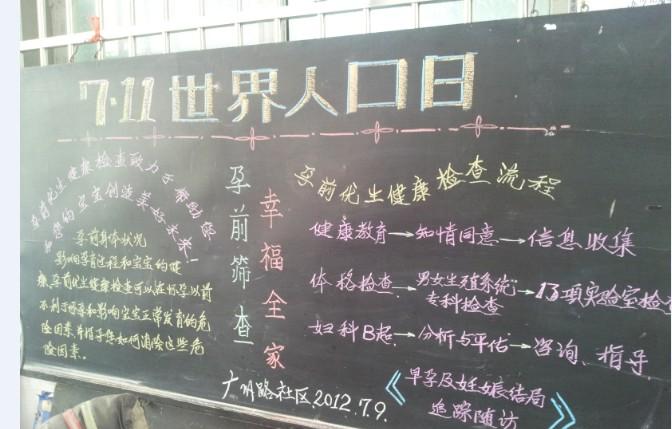 7·11世界人口日
孕前优生健康检查致力于帮助您
和您的宝宝创造美好未来!
孕前身体状况
影响孕育过程和宝宝的健
康,孕前优生健康检查可以在怀孕以前
不利于怀孕和影响宝宝正常发育的危
险因素,并指导您如何消除这些危
险因素.
孕前筛查
幸福全家
孕前优生健康检查流程
健康教育→知情同意→信息收集
体格检查→男女生殖系统专科检查→13项实验室检查
妇科B超→分析与评估→咨询、指导
《早孕及妊娠结局
追踪随访》
广州路社区.2012.7.9.